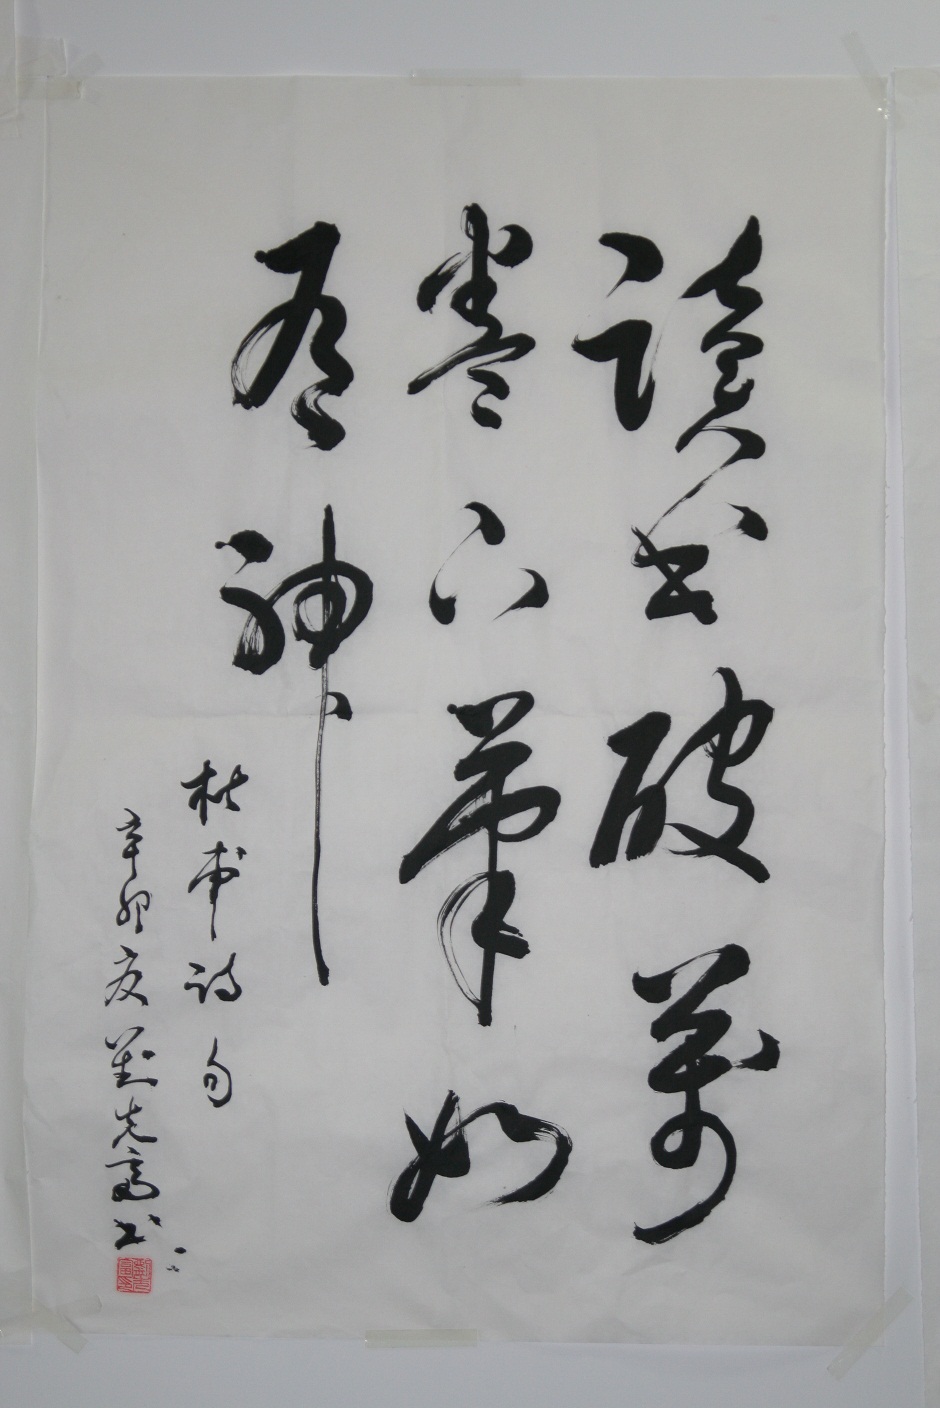 讀書破萬
卷下筆如
有神
杜甫詩句
辛卯夏書